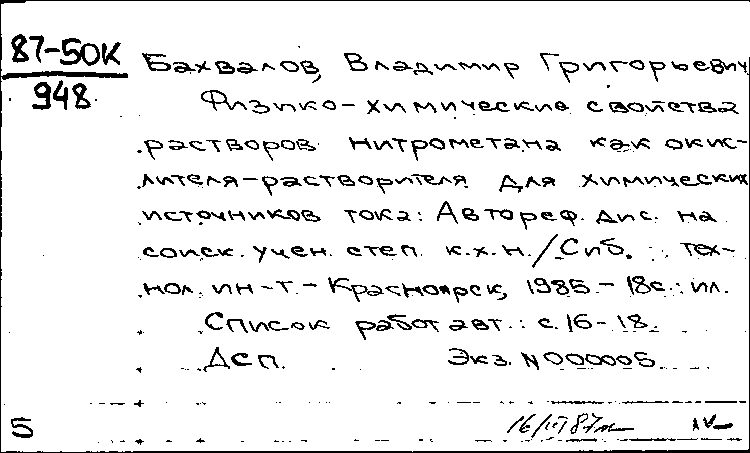 87-50К
948
Бахвалов, Владимир Григорьевич
Физико-химические свойства
растворов нитрометана как окис-
лителя-растворителя для химических
источников тока: Автореф. дис. на
соиск. учен. степ. к.х.н./Сиб. тех-
нол. ин-т. - Красноярск, 1985. - 18с.: ил.
Список работ авт.: с. 16-18.
ДСП. Экз. N000005
5